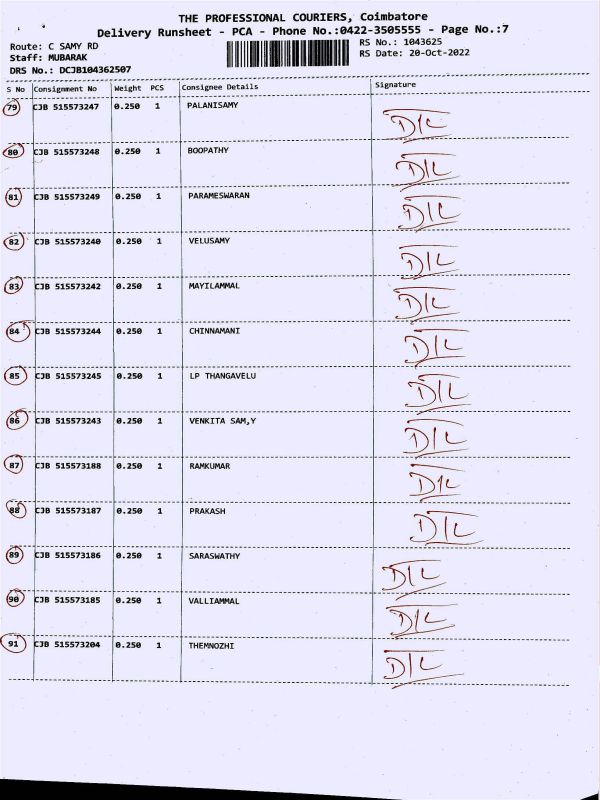 THE PROFESSIONAL COURIERS, Coimbatore
Delivery Runsheet - PCA - Phone No.:0422-3505555 - Page No.:7
Route: C SAMY RD
RS No.: 1043625
Staff: MUBARAK
RS Date: 20-Oct-2022
DRS No.: DCJB104362507
S No Consignment No Weight PCS Consignee Details Signature
79 CJB 515573247 0.250 1 PALANISAMY D/L
80 CJB 515573248 0.250 1 BOOPATHY D/L
81 CJB 515573249 0.250 1 PARAMESWARAN D/L
82 CJB 515573240 0.250 1 VELUSAMY D/L
83 CJB 515573242 0.250 1 MAYILAMMAL D/L
84 CJB 515573244 0.250 1 CHINNAMANI D/L
85 CJB 515573245 0.250 1 LP THANGAVELU D/L
86 CJB 515573243 0.250 1 VENKITA SAM,Y D/L
87 CJB 515573188 0.250 1 RAMKUMAR D/L
88 CJB 515573187 0.250 1 PRAKASH D/L
89 CJB 515573186 0.250 1 SARASWATHY D/L
90 CJB 515573185 0.250 1 VALLIAMMAL D/L
91 CJB 515573204 0.250 1 THEMNOZHI D/L